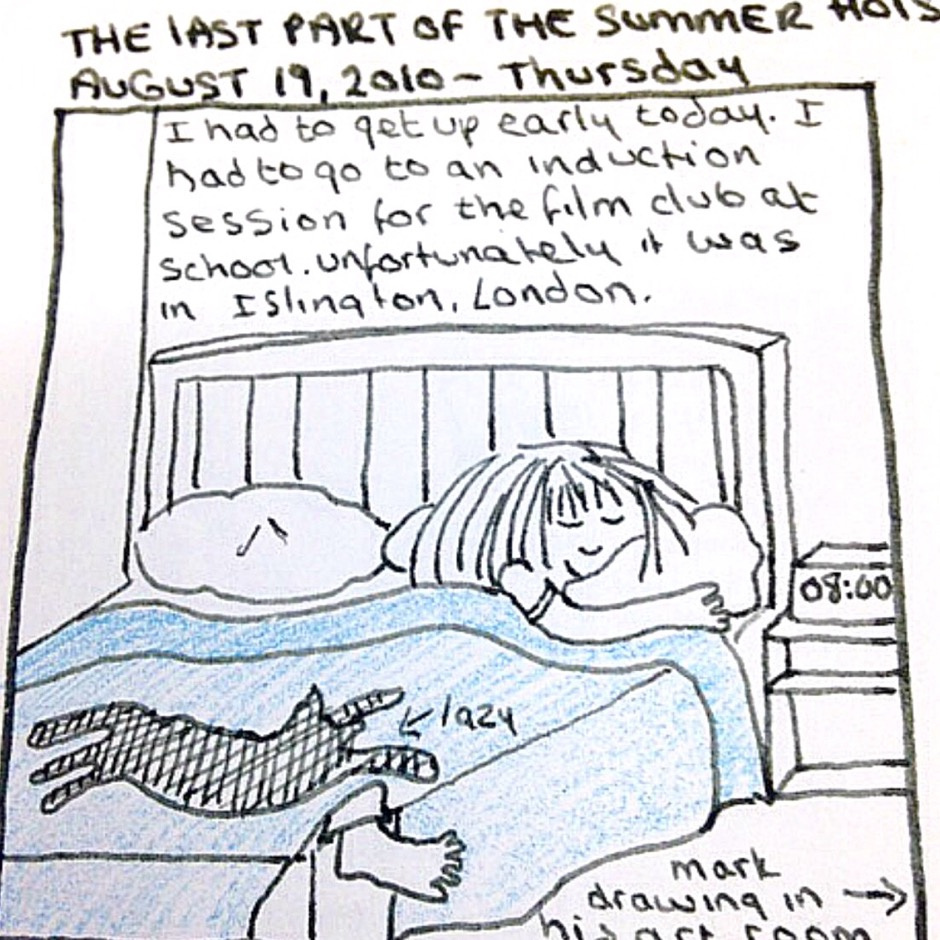 THE LAST PART OF THE SUMMER HOLS
AUGUST 19, 2010 - Thursday
I had to get up early today. I
had to go to an induction
session for the film club at
school. unfortunately it was
in Islington, London.
08:00
lazy
mark
drawing in
his art room